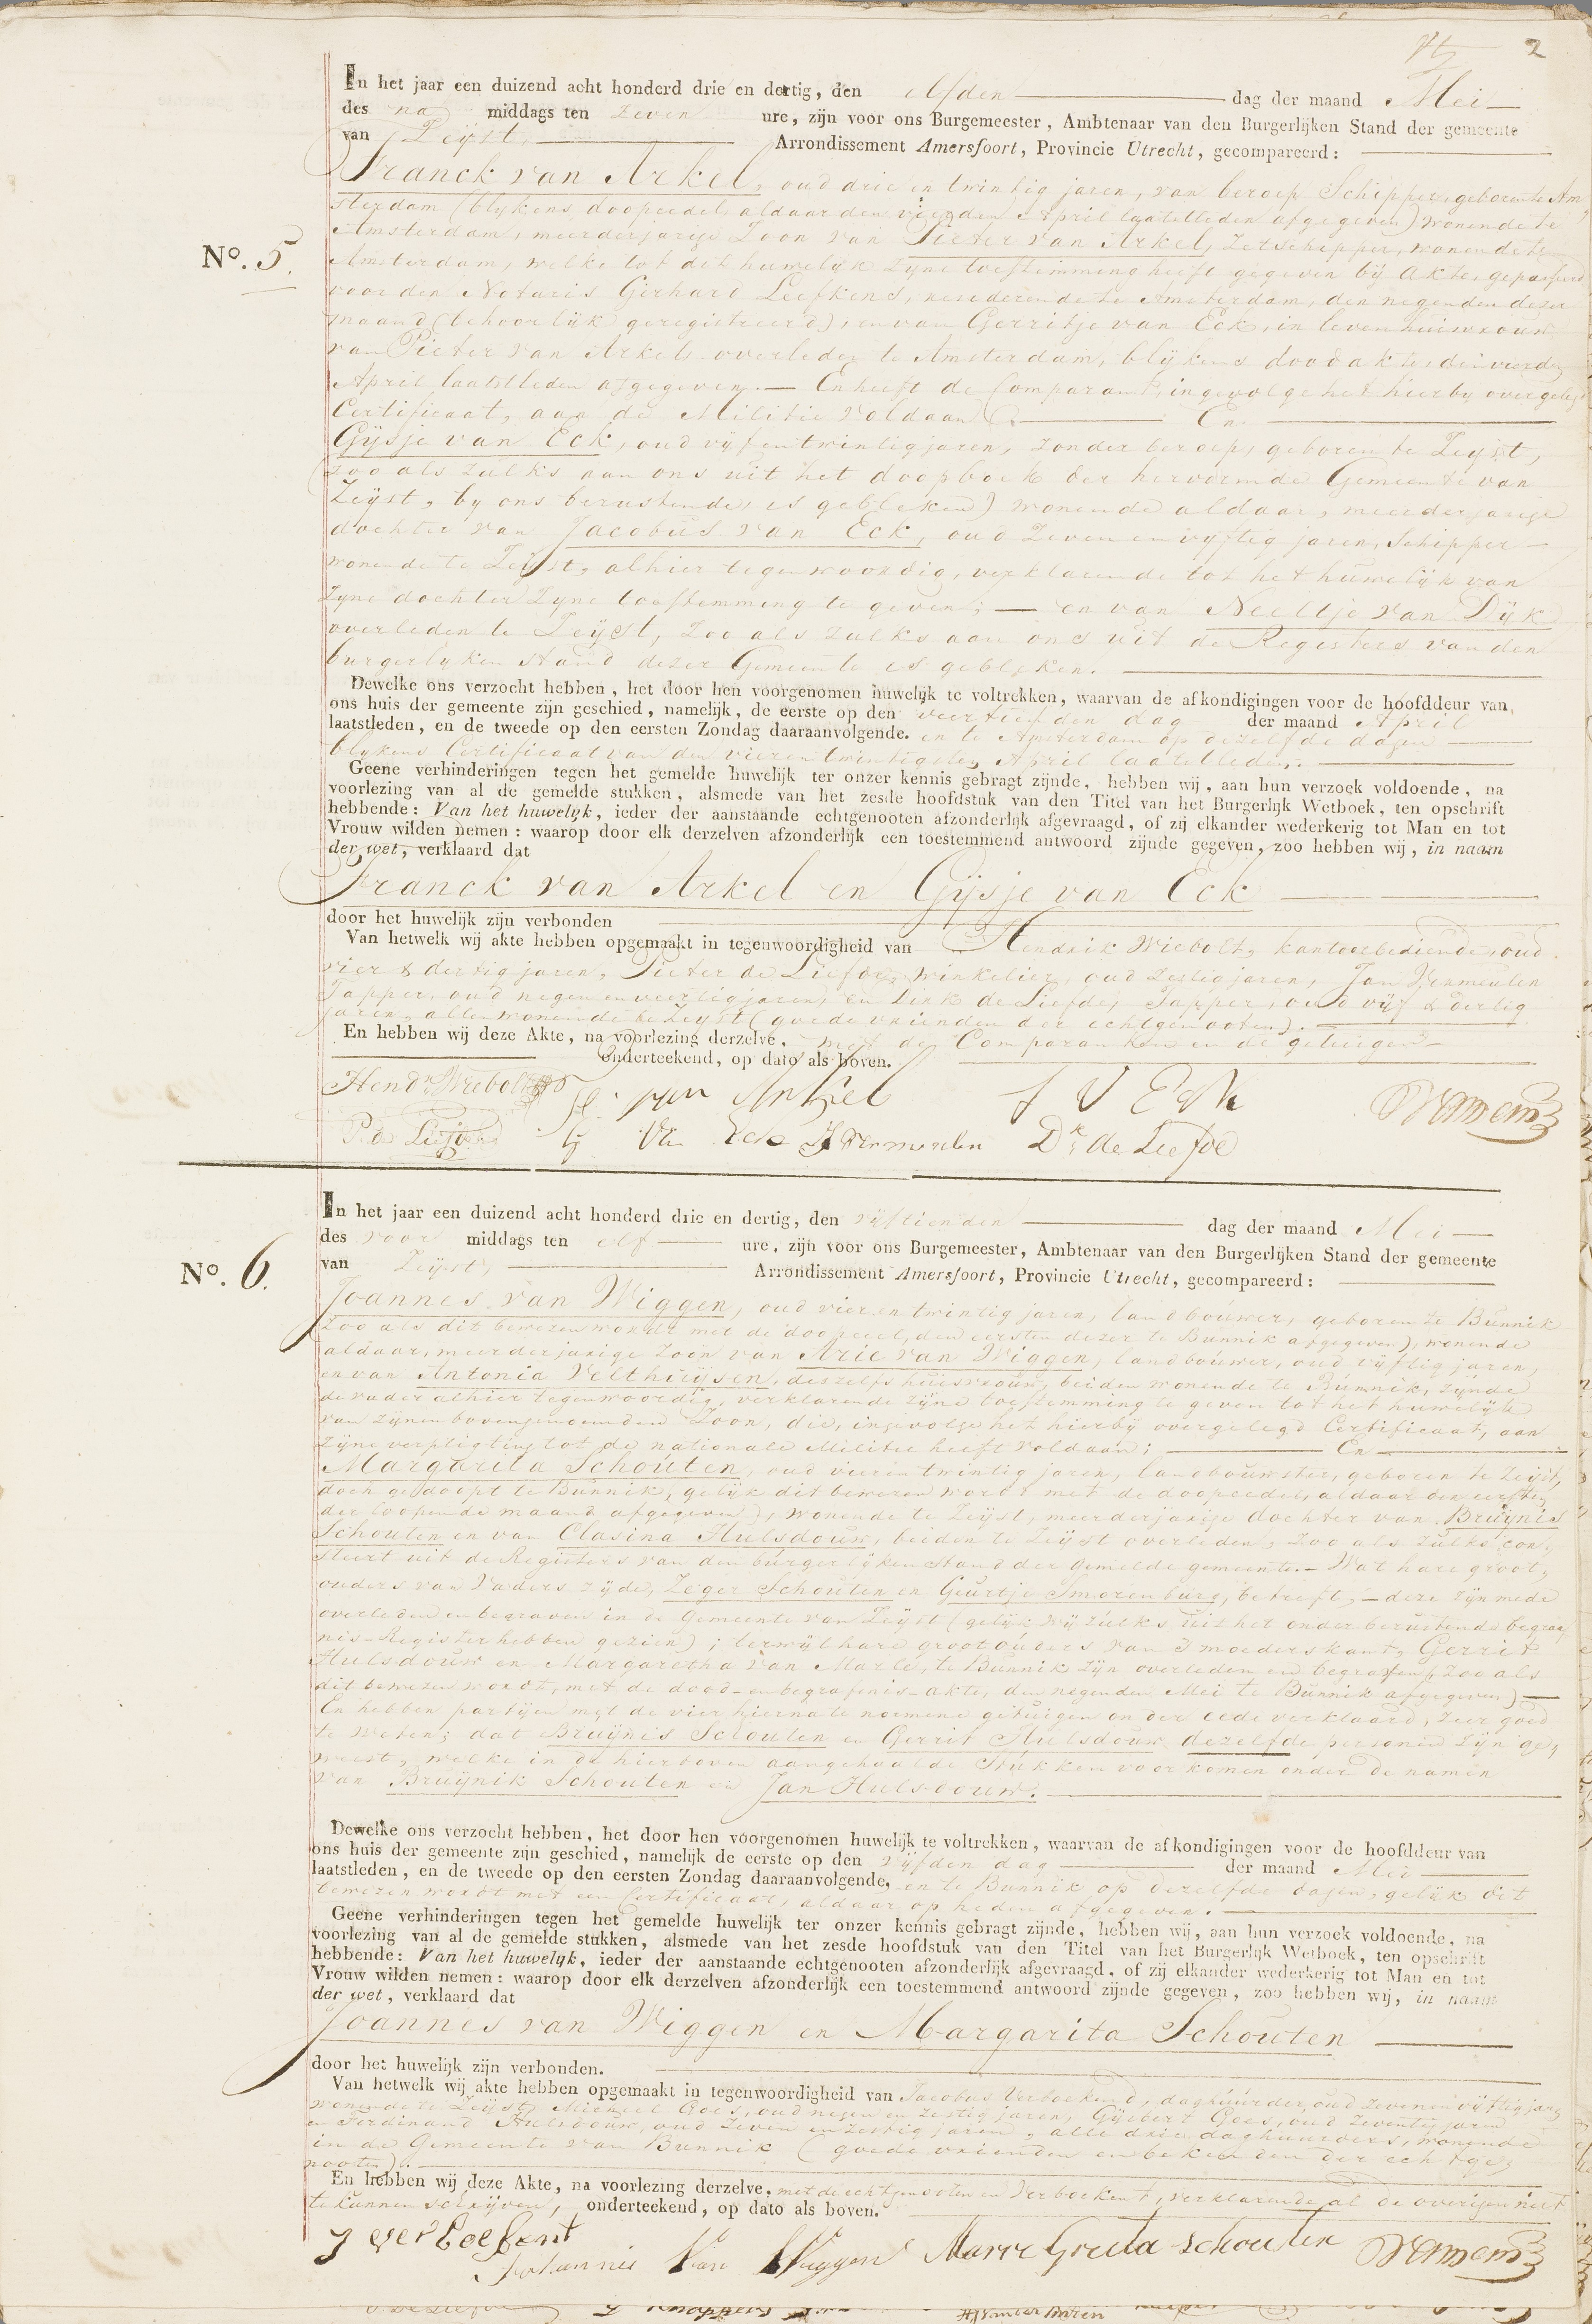 2
In het jaar een duizend acht honderd drie en dertig, den elfden dag der maand Mei
des na middags ten zeven ure, zijn voor ons Burgemeester, Ambtenaar van den Burgerlijken Stand der gemeente
van Zeijst, Arrondissement Amersfoort, Provincie Utrecht, gecompareerd:
Franck van Arkel, oud drie en twintig jaren, van beroep Schipper, geboren te Am
sterdam (blykens doopceel, aldaar den vierden April laatstleden afgegeven) wonende te
No. 5.
Amsterdam, meerderjarige Zoon van Pieter van Arkel, Zetschipper, wonende te
Amsterdam, welke tot dit huwelyk zyne toestemming heeft gegeven by akte, gepasseerd
voor den Notaris Gerhard Leefkens, residerende te Amsterdam, den negenden dezer
maand (behoorlijk geregistreerd), en van Gerritje van Eck, in leven huisvrouw
van Pieter van Arkel, overleden te Amsterdam, blijkens doodakte, den vierden
April laatstleden afgegeven. — En heeft de Comparant, ingevolge het hierby overgelegd
Certificaat, aan de Militie voldaan. En
Gijsje van Eck, oud vijf en twintig jaren, zonder beroep, geboren te Zeyst,
(zoo als zulks aan ons uit het doopboek der hervormde Gemeente van
Zeyst, by ons berustende, is gebleken) wonende aldaar, meerderjarige
dochter van Jacobus van Eck, oud zeven en vyftig jaren, Schipper
wonende te Zeyst, alhier tegenwoordig, verklarende tot het huwelijk van
zyne dochter zyne toestemming te geven; — en van Neeltje van Dijk
overleden te Zeyst, zoo als zulks aan ons uit de Registers van den
burgerlyken stand dezer Gemeente is gebleken.
Dewelke ons verzocht hebben, het door hen voorgenomen huwelijk te voltrekken, waarvan de afkondigingen voor de hoofddeur van
ons huis der gemeente zijn geschied, namelijk, de eerste op den veertienden dag der maand April
laatstleden, en de tweede op den eersten Zondag daaraanvolgende. en te Amsterdam op dezelfde dagen
blykens Certificaat van den vier en twintigsten April laatstleden.
Geene verhinderingen tegen het gemelde huwelijk ter onzer kennis gebragt zijnde, hebben wij, aan hun verzoek voldoende, na
voorlezing van al de gemelde stukken, alsmede van het zesde hoofdstuk van den Titel van het Burgerlijk Wetboek, ten opschrift
hebbende: Van het huwelijk, ieder der aanstaande echtgenooten afzonderlijk afgevraagd, of zij elkander wederkerig tot Man en tot
Vrouw wilden nemen: waarop door elk derzelven afzonderlijk een toestemmend antwoord zijnde gegeven, zoo hebben wij, in naam
der wet, verklaard dat
Franck van Arkel en Gijsje van Eck
door het huwelijk zijn verbonden
Van hetwelk wij akte hebben opgemaakt in tegenwoordigheid van Hendrik Wiebolt, kantoorbediende, oud
vier & dertig jaren, Pieter de Liefde, winkelier, oud zestig jaren, Jan Vermeulen
Tapper, oud negen en veertig jaren, en Dirk de Liefde, Tapper, oud vijf & dertig
jaren, allen wonende te Zeyst (goede vrienden der echtgenooten).
En hebben wij deze Akte, na voorlezing derzelve, met de Comparanten en de getuigen
onderteekend, op dato als boven.
Hendk Wiebolt F. van Arkel J V Eck
P. de Liefde G Van Eck J Vermeulen Dk de Liefde
In het jaar een duizend acht honderd drie en dertig, den vijftienden dag der maand Mei
des voor middags ten elf ure, zijn voor ons Burgemeester, Ambtenaar van den Burgerlijken Stand der gemeente
No. 6.
van Zeijst, Arrondissement Amersfoort, Provincie Utrecht, gecompareerd:
Joannes van Wiggen, oud vier en twintig jaren, landbouwer, geboren te Bunnik
zoo als dit bewezen wordt met de doopceel, den eersten dezer te Bunnik afgegeven), wonende
aldaar, meerderjarige zoon van Arie van Wiggen, landbouwer, oud vijftig jaren,
en van Antonia Velthuijsen, deszelfs huisvrouw, beiden wonende te Bunnik, zijnde
de vader alhier tegenwoordig, verklarende zijne toestemming te geven tot het huwelijk
van zijnen bovengenoemden Zoon, die, ingevolge het hierbij overgelegd Certificaat, aan
zijne verpligting tot de nationale Militie heeft voldaan; En
Margarita Schouten, oud vier en twintig jaren, landbouwster, geboren te Zeijst,
doch gedoopt te Bunnik, gelijk dit bewezen wordt met de doopceedel, aldaar den eersten
der loopende maand afgegeven), wonende te Zeijst, meerderjarige dochter van Bruijnis
Schouten en van Clasina Hulsdouw, beiden te Zeijst overleden, zoo als zulks con-
steert uit de Registers van den burgerlijken Stand der gemelde gemeente. — Wat hare groot-
ouders van Vaders zijde, Zeger Schouten en Geurtje Smorenburg, betreft, — deze zijn mede
overleden en begraven in de Gemeente van Zeijst (gelijk wij zulks uit het onder berustende begraaf
nis-Register hebben gezien); terwijl hare grootouders van 's moederskant, Gerrit
Hulsdouw en Margaretha van Marle, te Bunnik zijn overleden en begraven, zoo als
dit bewezen wordt, met de dood- en begrafenis-akte, den negenden Mei te Bunnik afgegeven) —
En hebben partijen met de vier hierna te noemene getuigen onder eede verklaard, zeer goed
te weten; dat Bruijnis Schouten en Gerrit Hulsdouw dezelfde personen zijn ge-
weest, welke in de hierboven aangehaalde Stukken voorkomen onder de namen
van Bruijnik Schouten en Jan Hulsdouw.
Dewelke ons verzocht hebben, het door hen voorgenomen huwelijk te voltrekken, waarvan de afkondigingen voor de hoofddeur van
ons huis der gemeente zijn geschied, namelijk de eerste op den vijfden dag der maand Mei
laatstleden, en de tweede op den eersten Zondag daaraanvolgende, en te Bunnik op dezelfde dagen, gelijk dit
bewezen wordt met een Certificaat, aldaar op heden afgegeven.
Geene verhinderingen tegen het gemelde huwelijk ter onzer kennis gebragt zijnde, hebben wij, aan hun verzoek voldoende, na
voorlezing van al de gemelde stukken, alsmede van het zesde hoofdstuk van den Titel van het Burgerlijk Wetboek, ten opschrift
hebbende: Van het huwelijk, ieder der aanstaande echtgenooten afzonderlijk afgevraagd, of zij elkander wederkerig tot Man en tot
Vrouw wilden nemen: waarop door elk derzelven afzonderlijk een toestemmend antwoord zijnde gegeven, zoo hebben wij, in naam
der wet, verklaard dat
Joannes van Wiggen en Margarita Schouten
door het huwelijk zijn verbonden.
Van hetwelk wij akte hebben opgemaakt in tegenwoordigheid van Jacobus Verboekend, daghuurder, oud zeven en vijftig jaren
wonende te Zeijst, Michiel Goes, oud negen en zestig jaren, Gijsbert Goes, oud zeventig jaren
en Ferdinand Hulsdouw, oud zeven en zestig jaren, alle drie daghuurders, wonende
in de Gemeente van Bunnik (goede vrienden en bekenden der echtge-
nooten).
En hebben wij deze Akte, na voorlezing derzelve, met de echtgenooten en Verboekent, verklarende al de overigen niet
te kunnen schrijven, onderteekend, op dato als boven.
J verboekent Johannis Van Wiggen Marre Greeta schouten